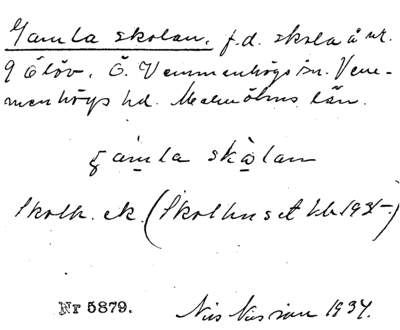 Gamla skolan, f.d. skola å nr.
9 Ölöv, Ö. Vemmenhögs sn. Vem-
menhögs hd. Malmöhus län.
gamla skolan
Skolh. ek. (Skolhuset kb 1931-)
Nr 5879.
Nils Nilsson 1937.